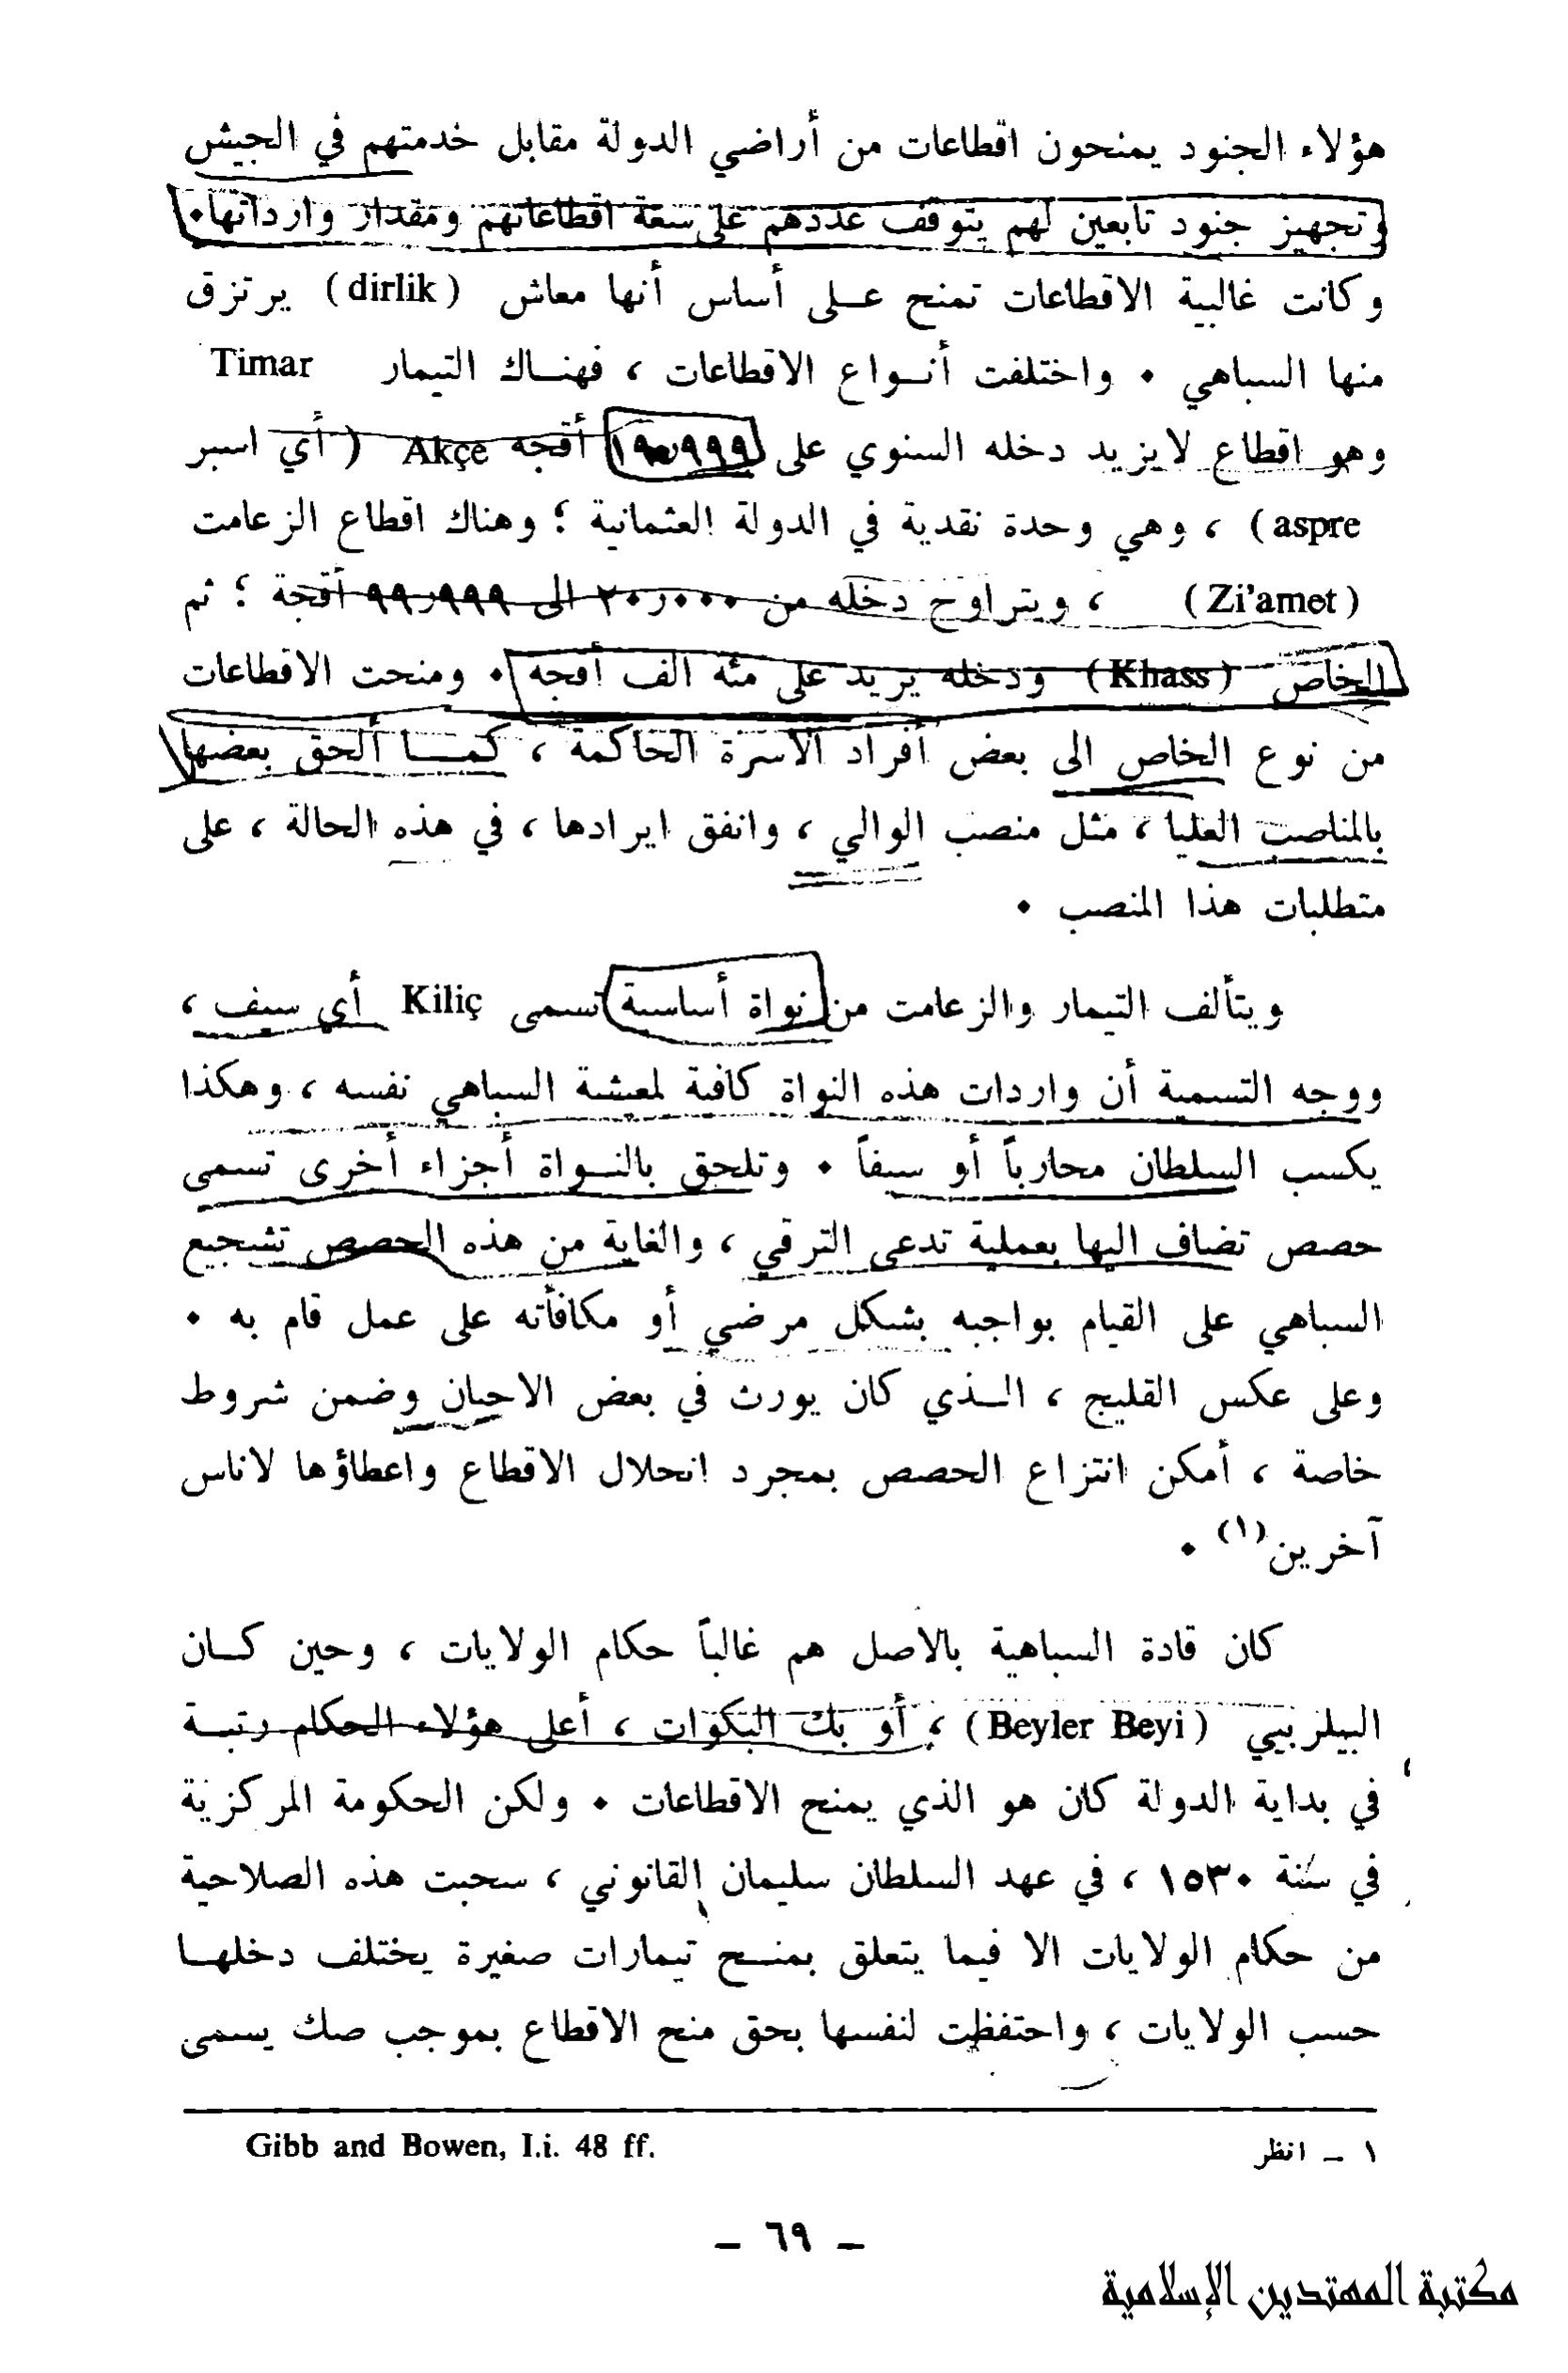 هؤلاء الجنود يمنحون اقطاعات من أراضي الدولة مقابل خدمتهم في الجيش
وتجهيز جنود تابعين لهم يتوقف عددهم على سعة اقطاعاتهم ومقدار وارداتها٠
وكانت غالبية الاقطاعات تمنح على أساس أنها معاش (dirlik) يرتزق
منها السباهي ٠ واختلفت أنواع الاقطاعات ، فهناك التيمار Timar
وهو اقطاع لايزيد دخله السنوي على ١٩ر٩٩٩ أقجه Akçe (أي اسبر
aspre) ، وهي وحدة نقدية في الدولة العثمانية ؛ وهناك اقطاع الزعامت
(Zi'amet) ، ويتراوح دخله من ٢٠ر٠٠٠ الى ٩٩ر٩٩٩ أقجة ؛ ثم
الخاص (Khass) ودخله يزيد على مئة الف أقجه ٠ ومنحت الاقطاعات
من نوع الخاص الى بعض أفراد الأسرة الحاكمة ، كما ألحق بعضها
بالمناصب العليا ، مثل منصب الوالي ، وانفق ايرادها ، في هذه الحالة ، على
متطلبات هذا المنصب ٠
ويتألف التيمار والزعامت من نواة أساسية تسمى Kiliç أي سيف ،
ووجه التسمية أن واردات هذه النواة كافية لمعيشة السباهي نفسه ، وهكذا
يكسب السلطان محارباً أو سيفاً ٠ وتلحق بالنواة أجزاء أخرى تسمى
حصص تضاف اليها بعملية تدعى الترقي ، والغاية من هذه الحصص تشجيع
السباهي على القيام بواجبه بشكل مرضي أو مكافأته على عمل قام به ٠
وعلى عكس القليج ، الذي كان يورث في بعض الاحيان وضمن شروط
خاصة ، أمكن انتزاع الحصص بمجرد انحلال الاقطاع واعطاؤها لاناس
آخرين(١) ٠
كان قادة السباهية بالاصل هم غالباً حكام الولايات ، وحين كان
البيلربيي (Beyler Beyi) ، أو بك البكوات ، أعلى هؤلاء الحكام رتبة
في بداية الدولة كان هو الذي يمنح الاقطاعات ٠ ولكن الحكومة المركزية
في سنة ١٥٣٠ ، في عهد السلطان سليمان القانوني ، سحبت هذه الصلاحية
من حكام الولايات الا فيما يتعلق بمنح تيمارات صغيرة يختلف دخلها
حسب الولايات ، واحتفظت لنفسها بحق منح الاقطاع بموجب صك يسمى
١ – انظر Gibb and Bowen, I.i. 48 ff.
– ٦٩ –
مكتبة المهتدين الإسلامية